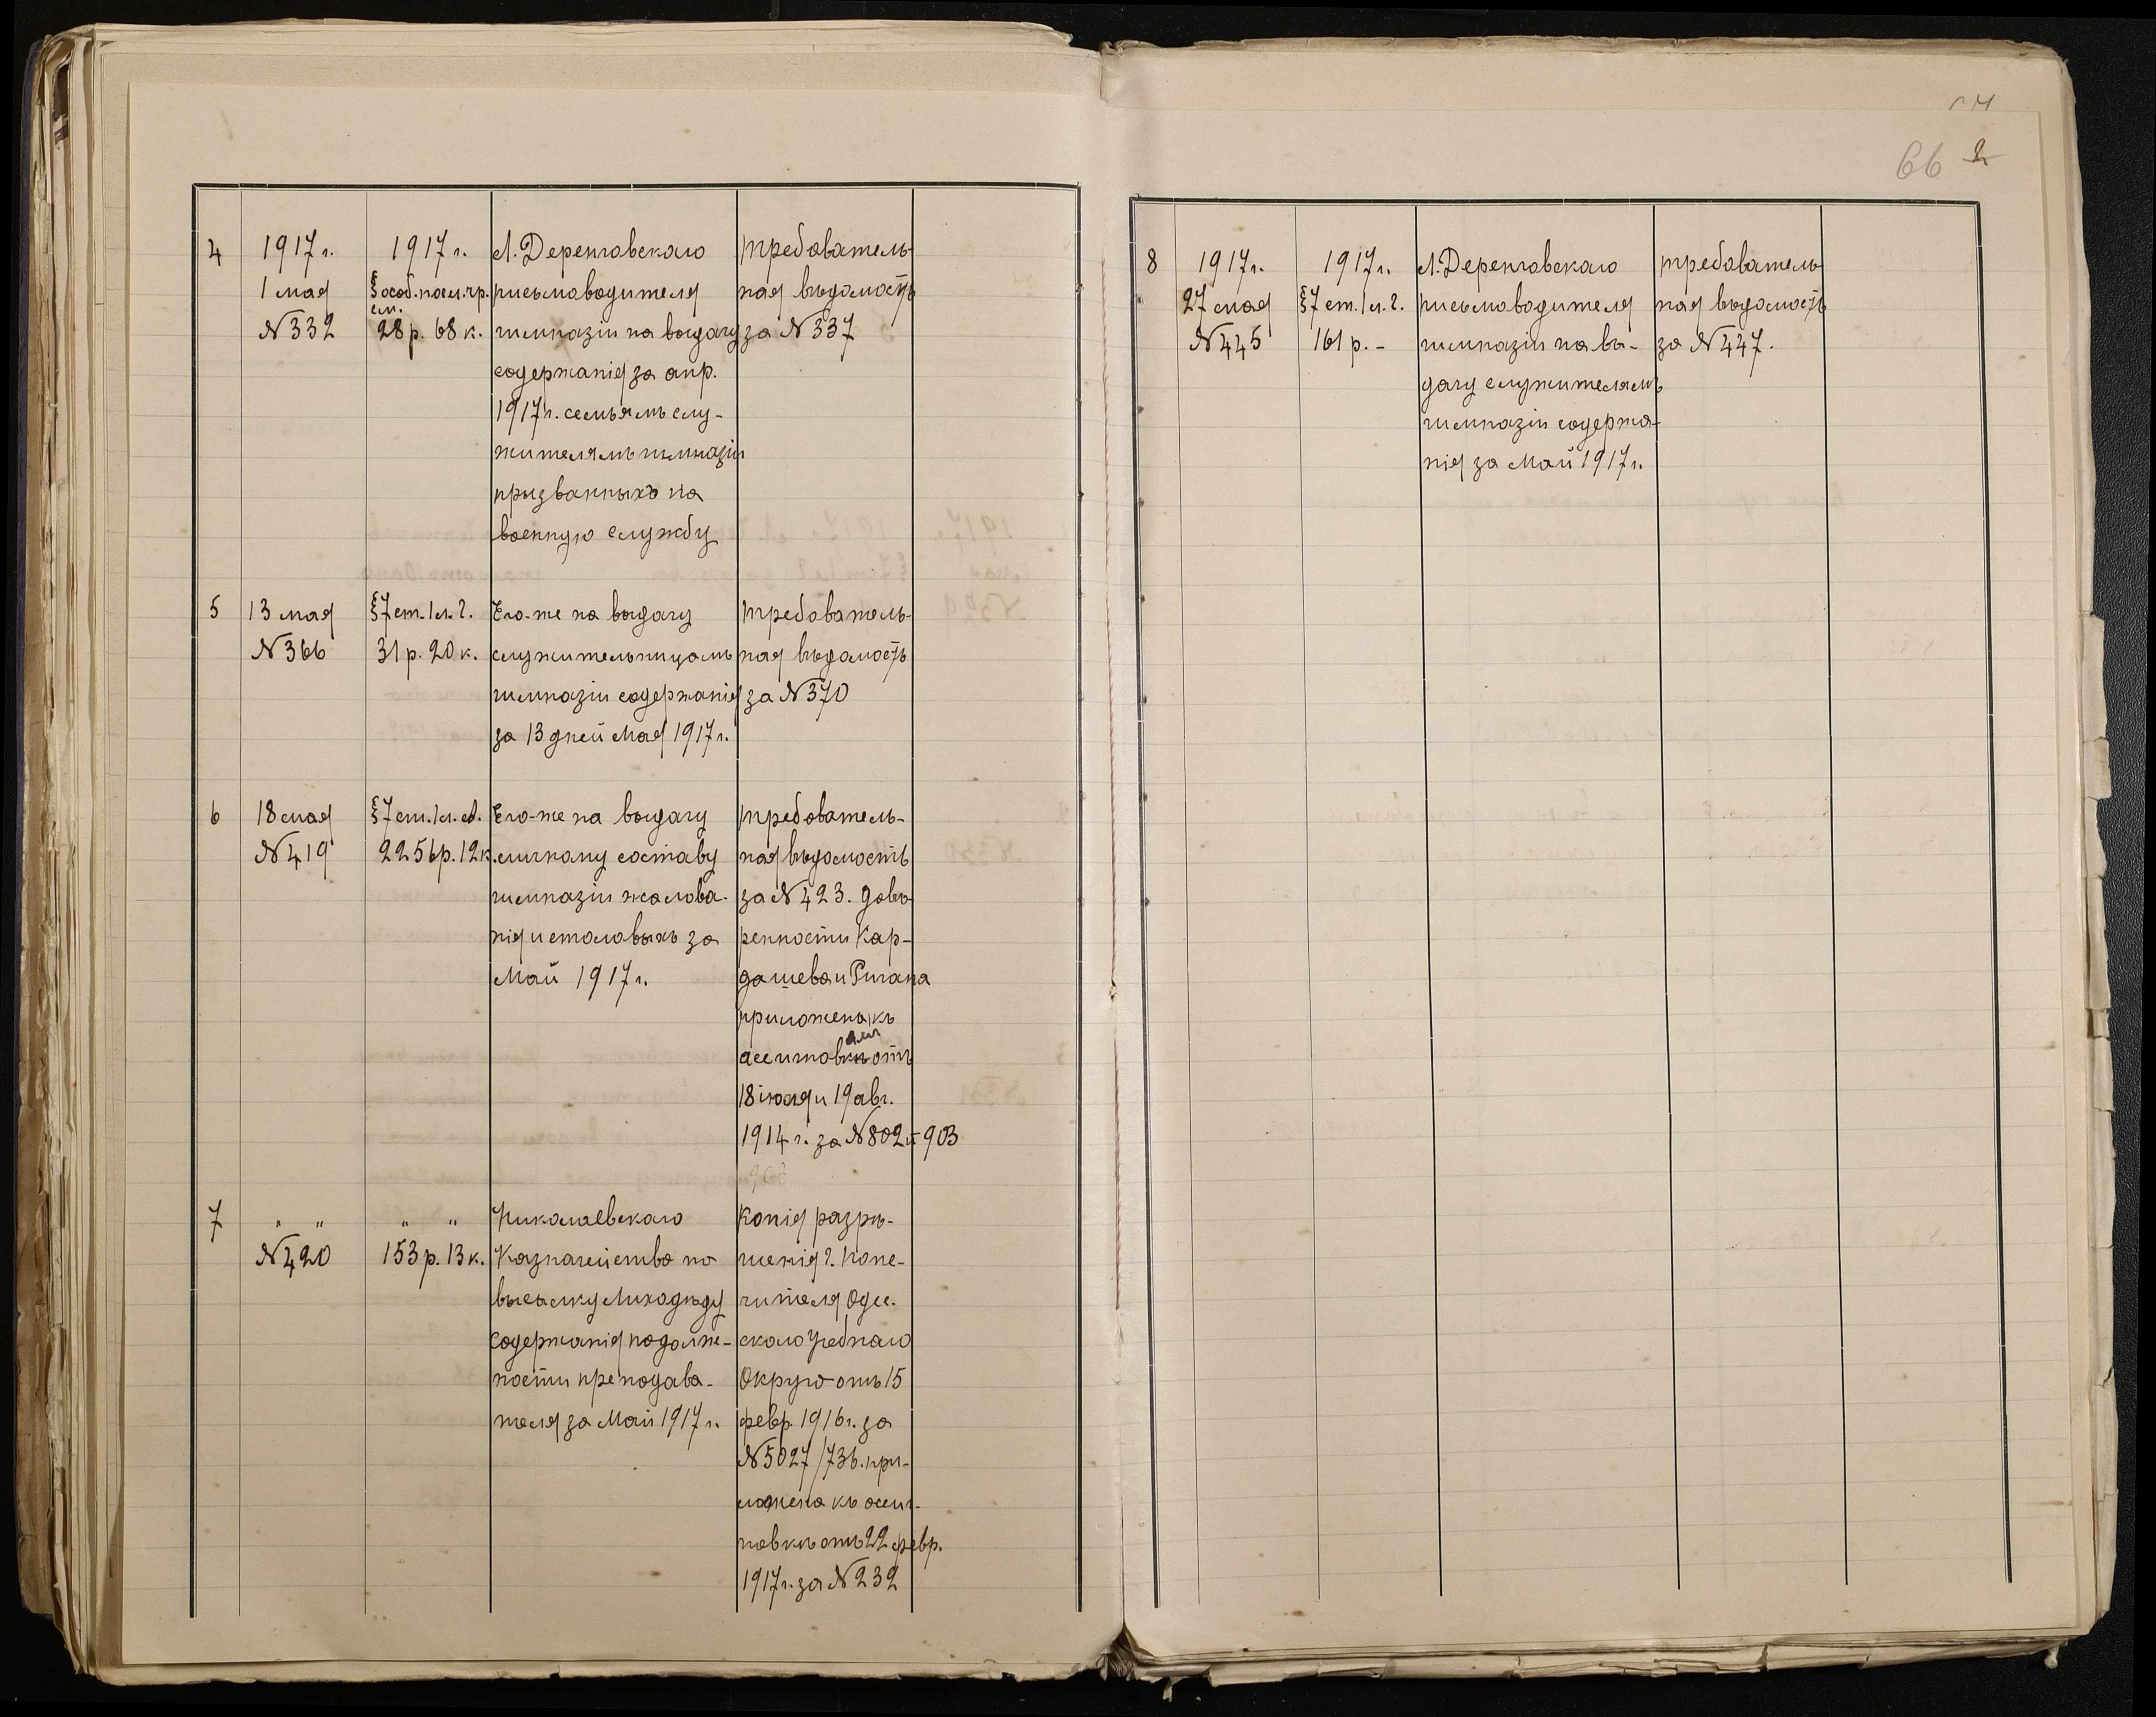 66 2
4
1917 г.
1 мая
№ 332
1917 г.
§ особ. посл. гр.
см.
28 р. 68 к.
Л. Деренговскаго
письмоводителя
гимназіи на выдачу
содержанія за апр.
1917 г. семьямъ слу-
жителямъ гимназіи
призванныхъ на
военную службу
требователь-
ная вѣдомость
за № 337
5
13 мая
№ 366
§ 7 ст. 1 л. 2.
31 р. 20 к.
Его-же на выдачу
служительницамъ
гимназіи содержанія
за 13 дней Мая 1917 г.
требователь-
ная вѣдомость
за № 370
6
18 мая
№ 419
§ 7 ст. 1 л.
2256 р. 12 к.
Его-же на выдачу
личному составу
гимназіи жалова-
нія и столовыхъ за
Май 1917 г.
требователь-
ная вѣдомость
за № 423. довѣ-
ренности Кар-
дашева и Ригана
приложены къ
ассигновкамъ отъ
18 іюля и 19 авг.
1914 г. за № 802 и 903
7
" "
№ 420
" "
153 р. 13 к.
Николаевскаго
Казначейства на
высылку Ликадѣду
содержанія по долж-
ности преподава-
теля за Май 1917 г.
Копія разрѣ-
шенія г. Попе-
чителя Одес-
скаго Учебнаго
Округа отъ 15
февр. 1916 г. за
№ 5027/736. при-
ложена къ ассиг-
новкѣ отъ 22 февр.
1917 г. за № 232
8
1917 г.
27 мая
№ 445
1917 г.
§ 7 ст. 1 л. 2.
161 р. -
Л. Деренговскаго
письмоводителя
гимназіи на вы-
дачу служителямъ
гимназіи содержа-
нія за Май 1917 г.
требователь-
ная вѣдомость
за № 447.